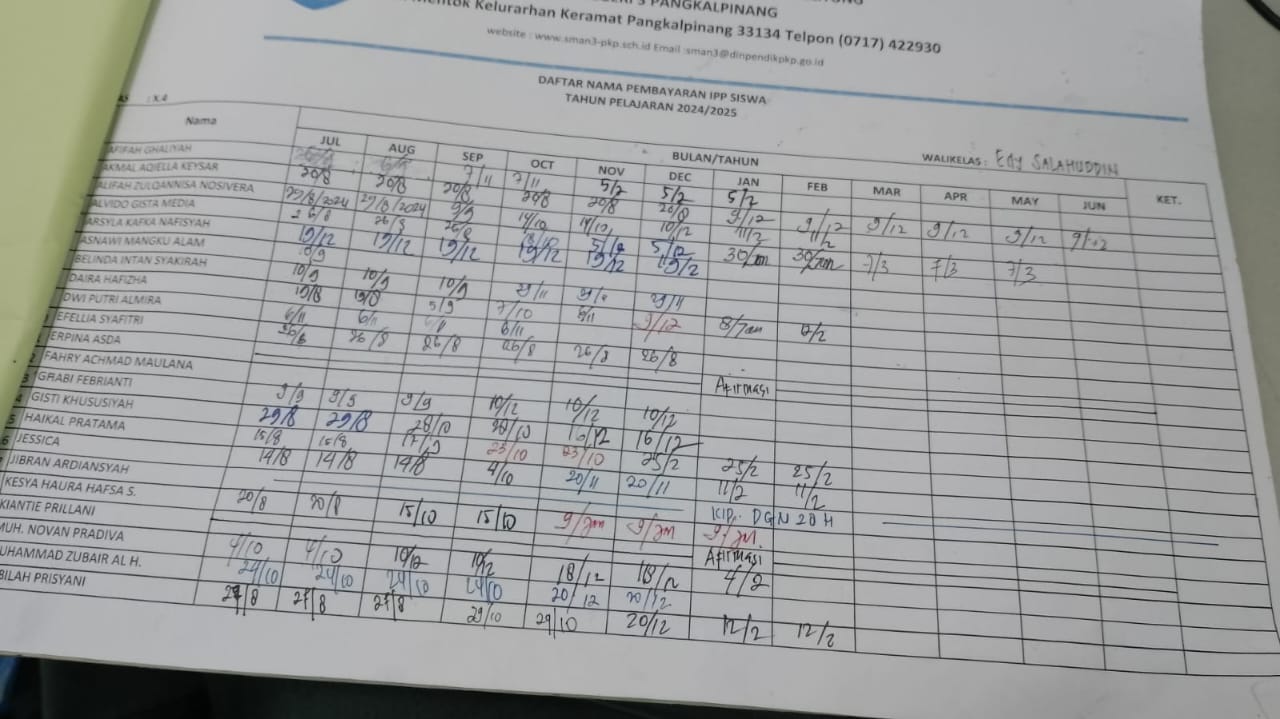 PANGKALPINANG
Kelurarhan Keramat Pangkalpinang 33134 Telpon (0717) 422930
website : www.sman3-pkp.sch.id Email :sman3@dinpendikpkp.go.id
DAFTAR NAMA PEMBAYARAN IPP SISWA
TAHUN PELAJARAN 2024/2025
: X.4
WALIKELAS : Edy SALAHUDDIN
Nama BULAN/TAHUN KET.
JUL AUG SEP OCT NOV DEC JAN FEB MAR APR MAY JUN
AFIFAH GHALIYAH 7/11 7/11 5/2 5/2 5/2
AKMAL AQIELLA KEYSAR 20/8 20/8 20/8 20/8 20/8 20/8
ALIFAH ZULQANNISA NOSIVERA 27/8/2024 27/8/2024 9/9 10/12 9/12 9/12 9/12 9/12 9/12 9/12
ALVIDO GISTA MEDIA 26/8 26/8 26/8 14/10 14/10 11/2 11/2
ARSYLA KAFKA NAFISYAH 5/12 5/12 30/Jan 30/Jan 7/3 7/3 7/3
ASNAWI MANGKU ALAM 19/12 19/12 19/12 19/12 19/12 19/12
BELINDA INTAN SYAKIRAH 10/9 10/9 10/9
DAIRA HAFIZHA 10/9
DWI PUTRI ALMIRA 19/8 19/8 5/9 7/10 9/12 8/Jan 7/2
EFELLIA SYAFITRI 6/11 6/11 6/11 6/11
ERPINA ASDA 26/8 26/8 26/8 26/8 26/8 26/8
FAHRY ACHMAD MAULANA Afirmasi
GHABI FEBRIANTI 9/9 9/9 9/9 10/12 10/12 10/12
GISTI KHUSUSIYAH 29/8 29/8 28/10 28/10 16/12 16/12
HAIKAL PRATAMA 15/8 15/8 17/9 23/10 23/10 25/2 25/2 25/2
JESSICA 14/8 14/8 14/8 4/10 20/11 20/11 11/2 11/2
JIBRAN ARDIANSYAH KIP. DGN 20 H
KESYA HAURA HAFSA S. 20/8 20/8 15/10 15/10 9/Jan 9/Jan 9/Jan.
KIANTIE PRILLANI Afirmasi
MUH. NOVAN PRADIVA 4/10 4/10 10/12 10/12 18/12 18/12 4/2
ZUBAIR AL H. 24/10 24/10 24/10 24/10 20/12 20/12
BILAH PRISYANI 27/8 27/8 27/8 29/10 29/10 20/12 12/2 12/2